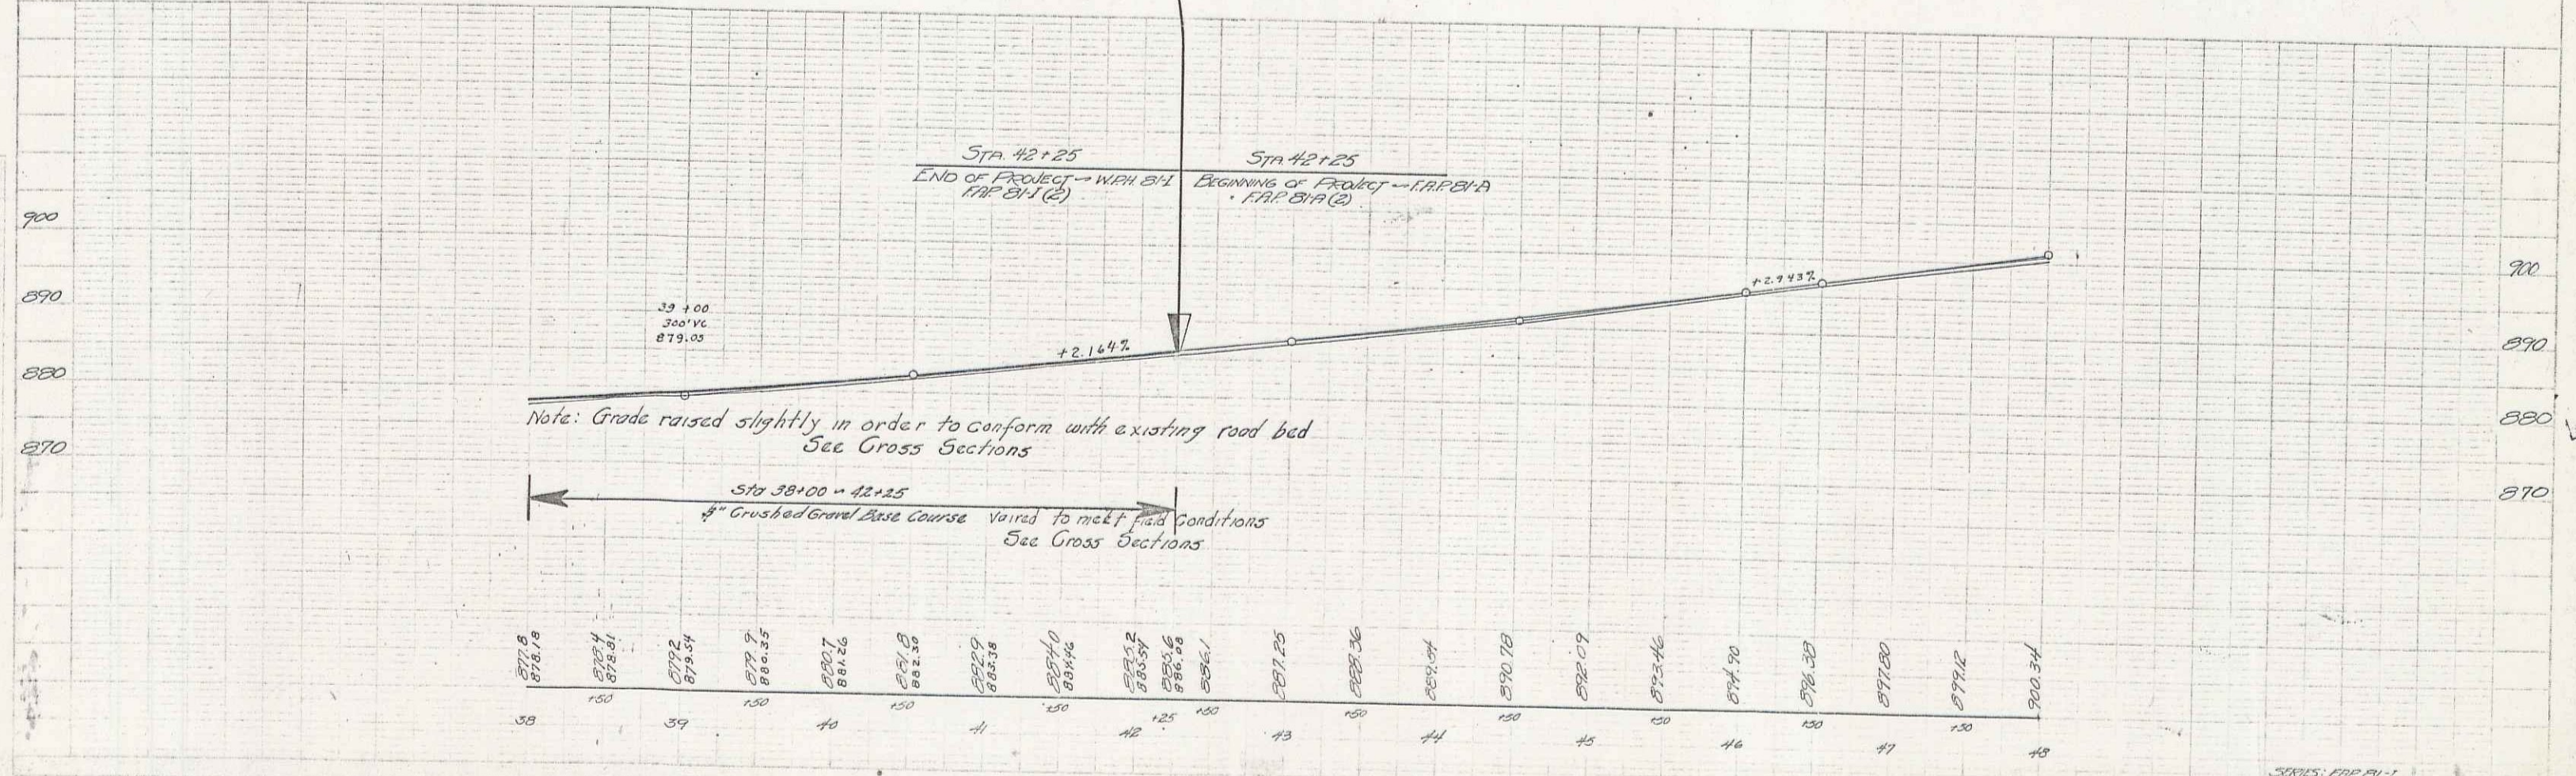 STA. 42+25
END OF PROJECT ~ W.P.H. 81-I
F.A.P. 81-I (2)
STA 42+25
BEGINNING OF PROJECT ~ F.A.P. 81-A
F.A.P. 81-A (2)
900
890
880
870
900
890
880
870
39 +00
300' VC
879.05
+2.164%
+2.943%
Note: Grade raised slightly in order to conform with existing road bed
See Cross Sections
Sta 38+00 ~ 42+25
Crushed Gravel Base Course Vaired to meet field Conditions
See Cross Sections
877.8
878.18
878.4
878.81
879.2
879.54
879.9
880.35
880.7
881.26
881.8
882.30
882.9
883.38
884.0
884.46
885.2
885.54
885.6
886.08
886.1
887.25
888.36
889.54
890.78
892.09
893.46
894.90
896.38
897.80
899.12
900.34
38
+50
39
+50
40
+50
41
+50
42
+25
+50
43
+50
44
+50
45
+50
46
+50
47
+50
48
SERIES: F.A.P. 81-I